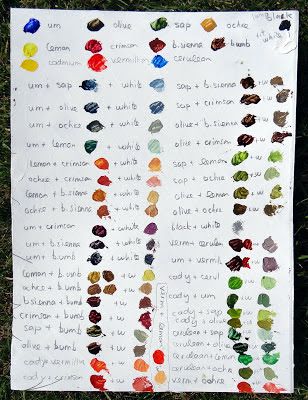 um olive sap ochre lamp black
lemon crimson b.sienna bumb + white
cadmium vermillion cerulean
um + sap + white
um + olive + white
um + ochre + white
um + lemon + white
lemon + crimson + white
ochre + crimson + white
lemon + b.sienna + white
ochre + b.sienna + white
um + crimson + white
um + b.sienna + white
um + bumb + white
lemon + b.umb + w
ochre + bumb + w
b.sienna + bumb + w
crimson + bumb + w
sap + bumb + w
olive + bumb + w
cady + vermillion
cady + crimson + w
verm + lemon
sap + b.sienna + w
sap + crimson + w
olive + b.sienna + w
olive + crimson + w
sap + lemon + w
sap + ochre + w
olive + lemon + w
olive + ochre + w
black + white
verm + cerulean + w
um + verm + w
cady + cerul + w
cady + um + w
cady + sap + w
cady + olive + w
cerulean + sap + w
cerulean + olive + w
cerulean + lemon + w
cerulean + ochre + w
verm + ochre + w